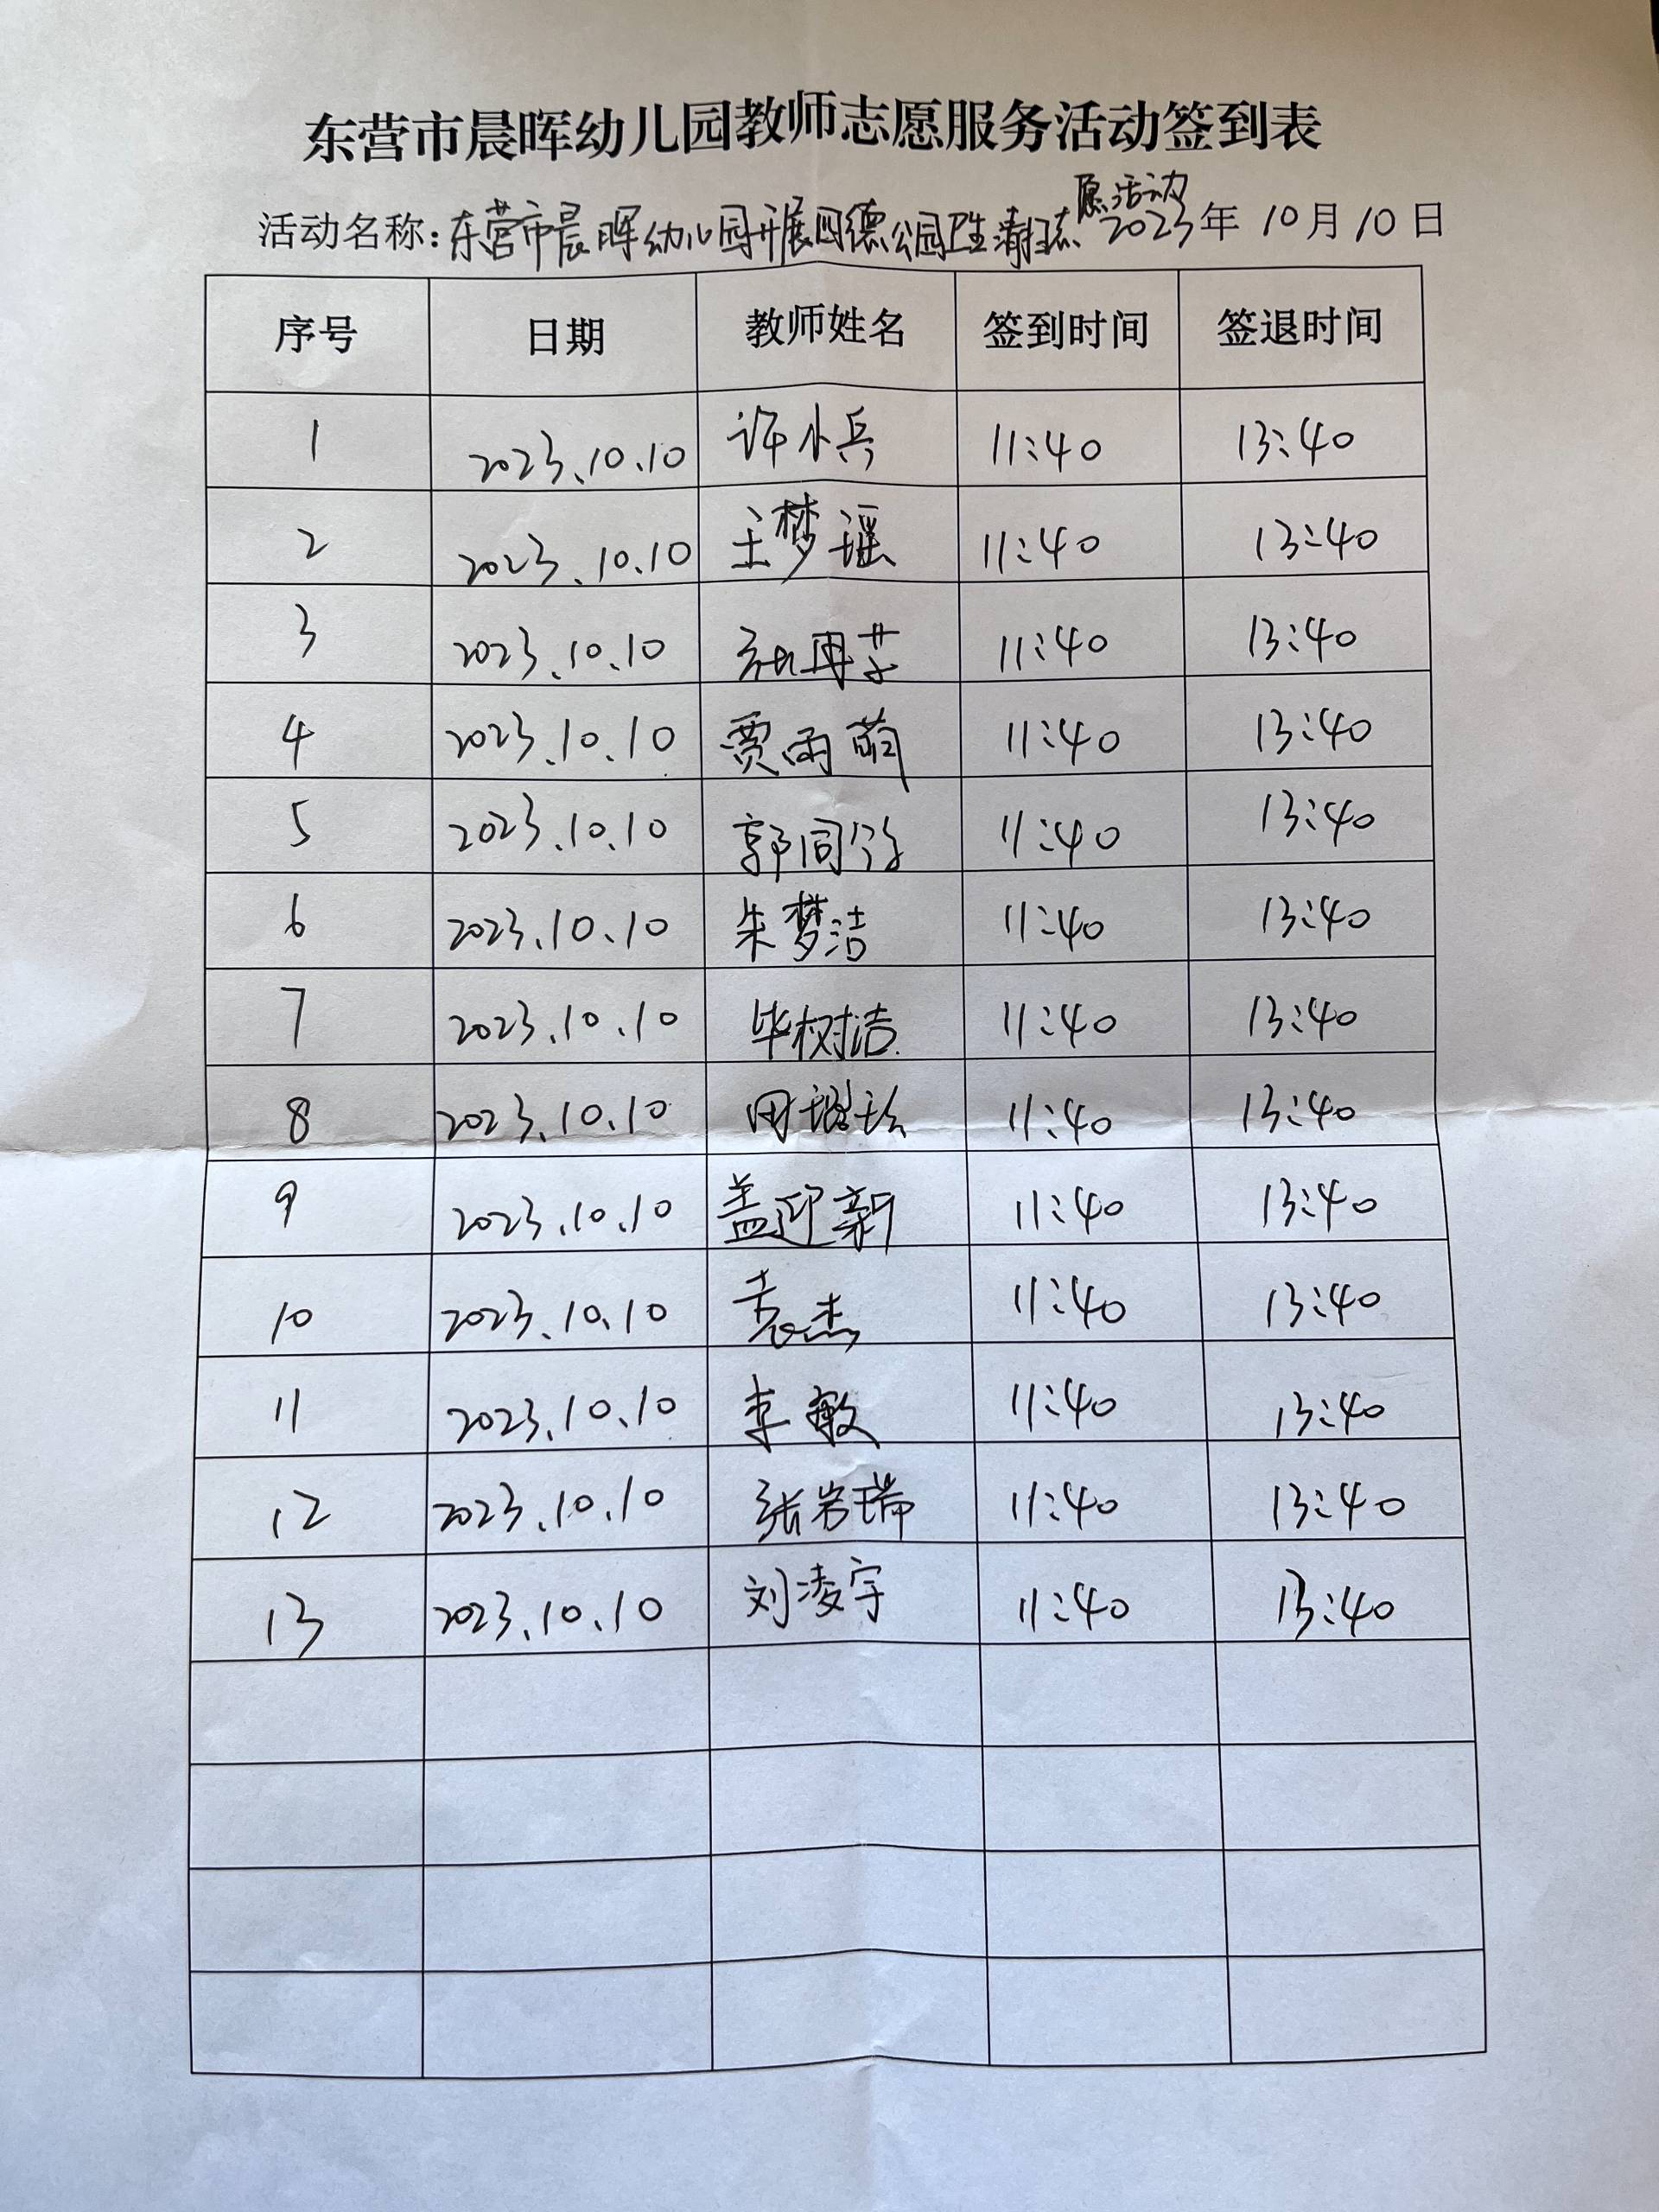 东营市晨晖幼儿园教师志愿服务活动签到表
活动名称：东营市晨晖幼儿园开展四德公园卫生清扫志愿活动 2023年 10月10日
序号 日期 教师姓名 签到时间 签退时间
1 2023.10.10 许小兵 11:40 13:40
2 2023.10.10 王梦瑶 11:40 13:40
3 2023.10.10 11:40 13:40
4 2023.10.10 贾雨萌 11:40 13:40
5 2023.10.10 11:40 13:40
6 2023.10.10 朱梦洁 11:40 13:40
7 2023.10.10 毕树洁 11:40 13:40
8 2023.10.10 11:40 13:40
9 2023.10.10 盖迎新 11:40 13:40
10 2023.10.10 袁杰 11:40 13:40
11 2023.10.10 李敏 11:40 13:40
12 2023.10.10 张岩瑞 11:40 13:40
13 2023.10.10 刘凌宇 11:40 13:40